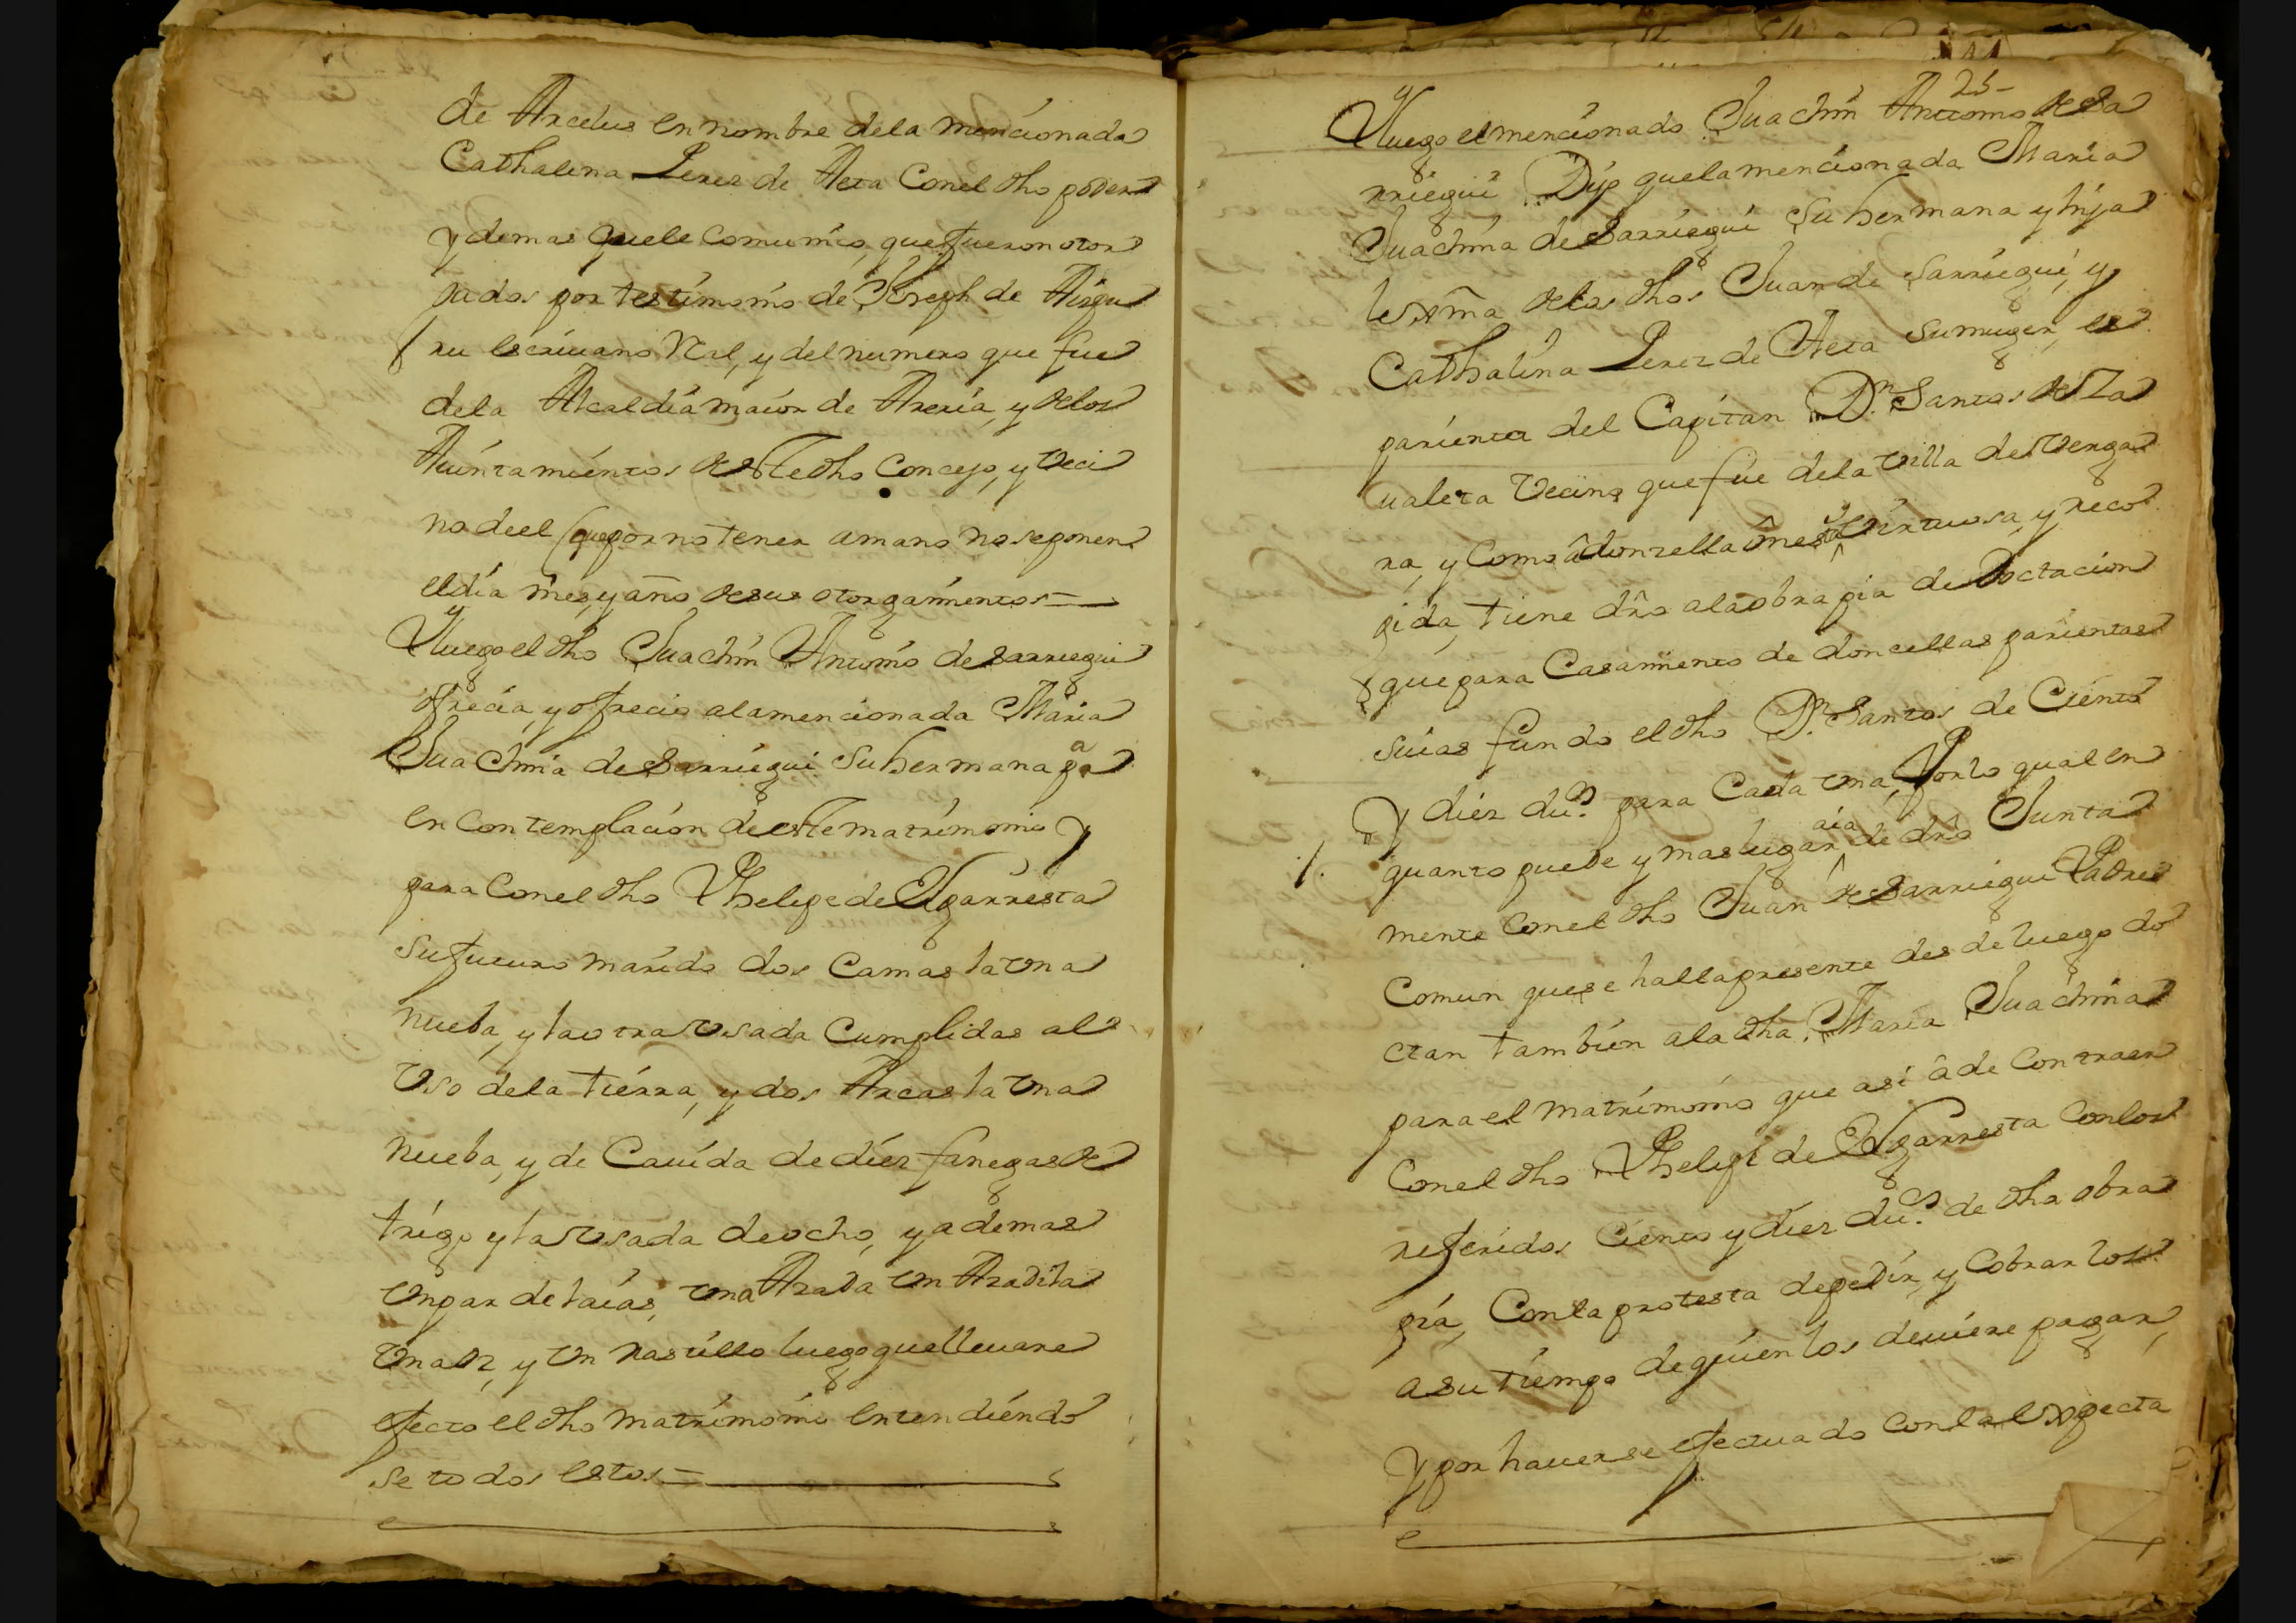 de Arcelus en nombre dela mencionada
Cathalina Perez de Aeta Conel dho poder
y demas quele Comunico, que fueron otor
gados por testimonio de Joseph de Aizgu
ru escriuano Ral, y del numero que fue
dela Alcaldia maior de Areria, y delos
Aiuntamientos de este dho Concejo, y veci
no de el (que por no tener a mano no se ponen
el dia mes, y año de sus otorgamientos =
Y luego el dho Juachin Antonio de Sarriegui
ofrecia, y ofrecio a la mencionada Maria
Juachina de Sarriegui su hermana pa
en Contemplacion de este matrimonio y
para Conel dho Phelipe de Ugarresta
su futuro marido dos Camas la vna
nueba, y la otra vsada Cumplidas al
vso de la tierra, y dos Arcas la vna
nueba, y de Cauida de diez fanegas de
trigo y la vsada de ocho, y ademas
vn par de laias, vna Azada vn Azadita
vna oz, y vn rastillo luego que lleuare
efecto el dho matrimonio entendiendo
se todos estos =
25
Y luego el mencionado Juachin Antonio de Sa
rriegui Dijo que la mencionada Maria
Juachina de Sarriegui su hermana y hija
lexma de los dhos Juan de Sarriegui, y
Cathalina Perez de Aeta su muger, es
parienta del Capitan Dn Santos de Za
ualeta vecino que fue dela villa de Verga
ra, y Como â donzella onesta y virtuosa, y reco
gida, tiene dro a la obra pia de Doctacion
que para Casamiento de doncellas parientas
suias fundo el dho Dn Santos de Ciento
y diez dus. para Cada vna, Por lo qual en
quanto puede y mas lugar aia de dro Junta
mente Conel dho Juan de Sarriegui Padre
Comun que se halla presente desde luego do
ctan tambien a la dha Maria Juachina
para el matrimonio que asi â de Contraer
Conel dho Phelipe de Ugarresta Con los
referidos Ciento y diez dus. de dha obra
pia, Con la protesta de pedir, y Cobrar los
a su tiempo de quien los deuiere pagar,
Y por hauerse efectuado Con la expecta